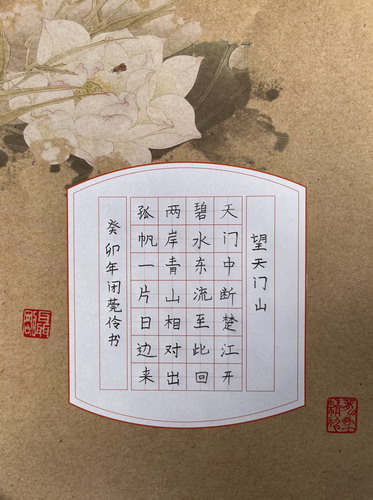 望天门山
天门中断楚江开
碧水东流至此回
两岸青山相对出
孤帆一片日边来
癸卯年闭菀伶书